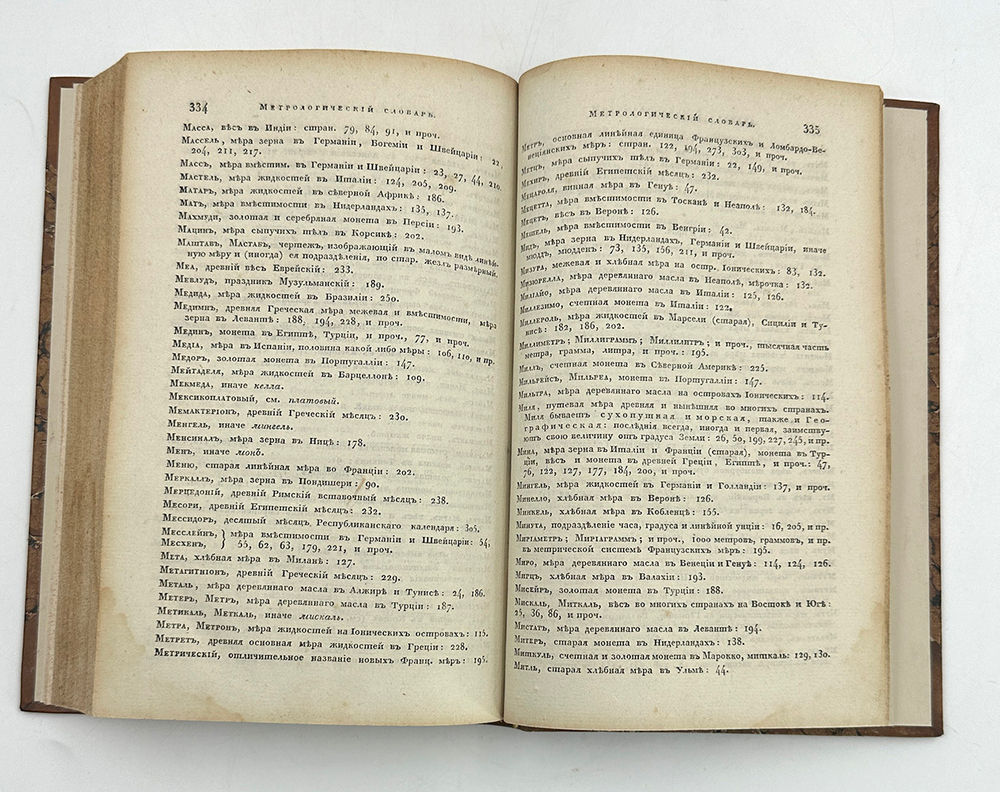 334 Метрологическій словарь.
Масса, вѣсъ въ Индіи: стран. 79, 84, 91, и проч.
Массель, мѣра зерна въ Германіи, Богеміи и Швейцаріи: 22,
204, 211, 217.
Массъ, мѣра вмѣстим. въ Германіи и Швейцаріи: 23, 27, 44, 210.
Мастель, мѣра жидкостей въ Италіи: 124, 205, 209.
Матаръ, мѣра жидкостей въ сѣверной Африкѣ: 186.
Матъ, мѣра вмѣстимости въ Нидерландахъ: 135, 137.
Махмуди, золотая и серебряная монета въ Персіи: 193.
Мацинъ, мѣра сыпучихъ тѣлъ въ Корсикѣ: 202.
Маштавъ, Мастабъ, чертежъ, изображающій въ маломъ видѣ линѣй-
ную мѣру и (иногда) ея подраздѣленія, по стар. жезлъ размѣрный.
Меа, древній вѣсъ Еврейскій: 233.
Мевлудъ, праздникъ Музульманскій: 189.
Медида, мѣра жидкостей въ Бразиліи: 250.
Медимнъ, древняя Греческая мѣра межевая и вмѣстимости, мѣра
зерна въ Левантѣ: 188, 194, 228, и проч.
Мединъ, монета въ Египтѣ, Турціи, и проч., 77, и проч.
Медіа, мѣра въ Испаніи, половина какой либо мѣры: 106, 110, и пр.
Медоръ, золотая монета въ Португалліи: 147.
Мейтаделя, мѣра жидкостей въ Барцеллонѣ: 109.
Мекмеда, иначе келла.
Мексикоплатовый, см. платовый.
Мемактеріонъ, древній Греческій мѣсяцъ: 230.
Менгель, иначе мингель.
Менсиналъ, мѣра зерна въ Ниццѣ: 178.
Менъ, иначе монъ.
Меню, старая линѣйная мѣра во Франціи: 202.
Меркаллъ, мѣра зерна въ Пондишери: 90.
Мерцедоній, древній Римскій вставочный мѣсяцъ: 238.
Месори, древній Египетскій мѣсяцъ: 232.
Мессидоръ, десятый мѣсяцъ Республиканскаго календаря: 305.
Месслейнъ, } мѣра вмѣстимости въ Германіи и Швейцаріи: 54,
Месхенъ, } 55, 62, 63, 179, 221, и проч.
Мета, хлѣбная мѣра въ Миланѣ: 127.
Метагитніонъ, древній Греческій мѣсяцъ: 229.
Металь, мѣра деревяннаго масла въ Алжирѣ и Тунисѣ: 24, 186.
Метеръ, Метръ, мѣра деревяннаго масла въ Турціи: 187.
Метикаль, Меткаль, иначе мискаль.
Метра, Метронъ, мѣра жидкостей на Іоническихъ островахъ: 115.
Метретъ, древняя основная мѣра жидкостей въ Греціи: 228.
Метрическій, отличительное названіе новыхъ Франц. мѣръ: 195.
Метрологическій словарь. 335
Метръ, основная линѣйная единица Французскихъ и Ломбардо-Ве-
неціянскихъ мѣръ: стран. 122, 194, 273, 303, и проч.
Метцъ, мѣра сыпучихъ тѣлъ въ Германіи: 22, 149, и проч.
Мехиръ, древній Египетскій мѣсяцъ: 232.
Мецароля, винная мѣра въ Генуѣ: 47.
Мецетта, мѣра вмѣстимости въ Тосканѣ и Неаполѣ: 132, 184.
Мецетъ, вѣсъ въ Веронѣ: 126.
Мешель, мѣра вмѣстимости въ Венгріи: 42.
Мидъ, мѣра зерна въ Нидерландахъ, Германіи и Швейцаріи, иначе
мюддъ, мюдденъ: 73, 135, 156, 211, и проч.
Мизура, межевая и хлѣбная мѣра на остр. Іоническихъ: 83, 132.
Мизюрелла, мѣра деревяннаго масла въ Неаполѣ, мѣрочка: 132.
Миліайо, мѣра деревяннаго масла въ Италіи: 125, 126.
Миллезимо, счетная монета въ Италіи: 122.
Миллероль, мѣра жидкостей въ Марсели (старая), Сициліи и Ту-
нисѣ: 182, 186, 202.
Миллиметръ; Миллиграммъ; Миллилитръ; и проч., тысячная часть
метра, грамма, литра, и проч.: 195.
Миллъ, счетная монета въ Сѣверной Америкѣ: 225.
Мильрейсъ, Мильреа, монета въ Португалліи: 147.
Мильтра, мѣра деревяннаго масла на островахъ Іоническихъ: 114.
Миля, путевая мѣра древняя и нынѣшняя во многихъ странахъ.
Миля бываетъ сухопутная и морская, также и Гео-
графическая: послѣднія всегда, иногда и первая, заимству-
ютъ свою величину отъ градуса Земли: 26, 50, 199, 227, 245, и пр.
Мина, мѣра зерна въ Италіи и Франціи (старая), монета въ Тур-
ціи, вѣсъ и монета въ древней Греціи, Египтѣ, и проч.: 47,
76, 122, 127, 177, 184, 200, и проч.
Мингель, мѣра жидкостей въ Германіи и Голландіи: 137, и проч.
Минелло, хлѣбная мѣра въ Веронѣ: 126.
Минкель, хлѣбная мѣра въ Кобленцѣ: 155.
Минута, подраздѣленіе часа, градуса и линѣйной унціи: 16, 205, и пр.
Миріаметръ; Миріаграммъ; и проч., 1000 метровъ, граммовъ, и пр.
въ метрической системѣ Французскихъ мѣръ: 195.
Миро, мѣра деревяннаго масла въ Венеціи и Генуѣ: 114, 124, 126.
Мирцъ, хлѣбная мѣра въ Валахіи: 193.
Мисейръ, золотая монета въ Турціи: 188.
Мискаль, Миткаль, вѣсъ во многихъ странахъ на Востокѣ и Югѣ:
25, 36, 86, и проч.
Мистатъ, мѣра деревяннаго масла въ Левантѣ: 194.
Митеръ, старая монета въ Нидерландахъ: 138.
Миткулъ, счетная и золотая монета въ Марокко, миткаль: 129, 130.
Митль, старая хлѣбная мѣра въ Ульмѣ: 44.